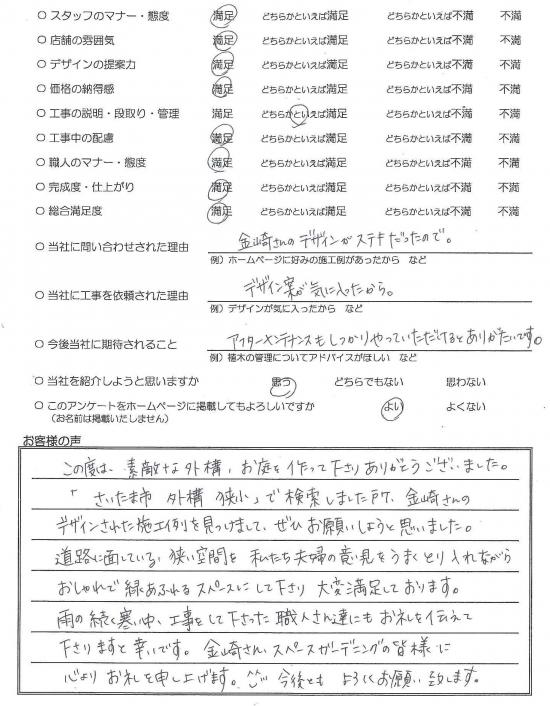 ○ スタッフのマナー・態度 満足 どちらかといえば満足 どちらかといえば不満 不満
○ 店舗の雰囲気 満足 どちらかといえば満足 どちらかといえば不満 不満
○ デザインの提案力 満足 どちらかといえば満足 どちらかといえば不満 不満
○ 価格の納得感 満足 どちらかといえば満足 どちらかといえば不満 不満
○ 工事の説明・段取り・管理 満足 どちらかといえば満足 どちらかといえば不満 不満
○ 工事中の配慮 満足 どちらかといえば満足 どちらかといえば不満 不満
○ 職人のマナー・態度 満足 どちらかといえば満足 どちらかといえば不満 不満
○ 完成度・仕上がり 満足 どちらかといえば満足 どちらかといえば不満 不満
○ 総合満足度 満足 どちらかといえば満足 どちらかといえば不満 不満
○ 当社に問い合わせされた理由 金崎さんのデザインがステキだったので。
例）ホームページに好みの施工例があったから など
○ 当社に工事を依頼された理由 デザイン案が気に入ったから。
例）デザインが気に入ったから など
○ 今後当社に期待されること アフターメンテナンスもしっかりやっていただけるとありがたいです。
例）植木の管理についてアドバイスがほしい など
○ 当社を紹介しようと思いますか 思う どちらでもない 思わない
○ このアンケートをホームページに掲載してもよろしいですか よい よくない
（お名前は掲載いたしません）
お客様の声
この度は、素敵な外構、お庭を作って下さりありがとうございました。
「さいたま市 外構 狭小」で検索しました所、金崎さんの
デザインされた施工例を見つけまして、ぜひお願いしようと思いました。
道路に面している、狭い空間を私たち夫婦の意見をうまくとり入れながら
おしゃれで緑あふれるスペースにして下さり大変満足しております。
雨の続く寒い中、工事をして下さった職人さん達にもお礼を伝えて
下さりますと幸いです。金崎さん、スペースガーデニングの皆様に
心よりお礼を申し上げます。^^ 今後ともよろしくお願い致します。